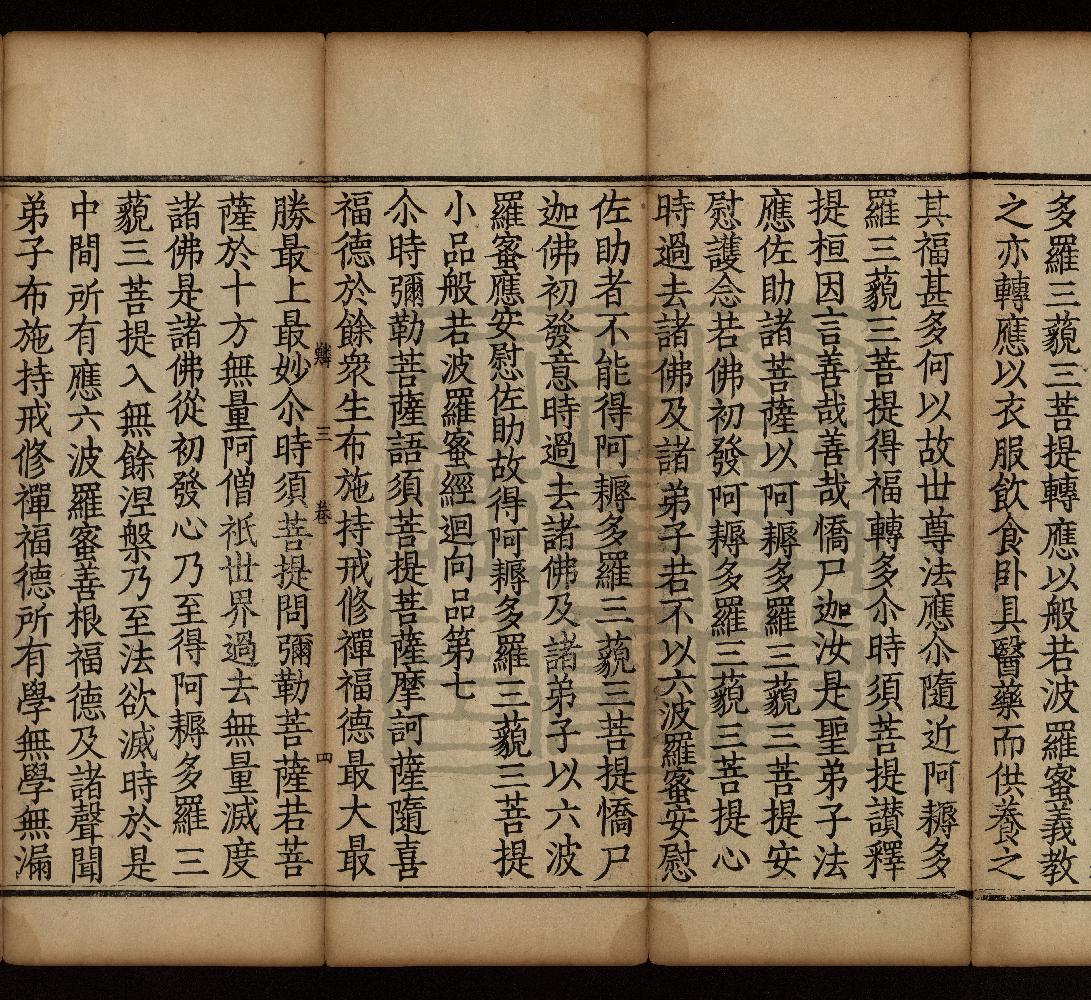 多羅三藐三菩提轉應以般若波羅蜜義教
之亦轉應以衣服飲食卧具醫藥而供養之
其福甚多何以故世尊法應尒隨近阿耨多
羅三藐三菩提得福轉多尒時須菩提讃釋
提桓因言善哉善哉憍尸迦汝是聖弟子法
應佐助諸菩薩以阿耨多羅三藐三菩提安
慰護念若佛初發阿耨多羅三藐三菩提心
時過去諸佛及諸弟子若不以六波羅蜜安慰
佐助者不能得阿耨多羅三藐三菩提憍尸
迦佛初發意時過去諸佛及諸弟子以六波
羅蜜應安慰佐助故得阿耨多羅三藐三菩提
小品般若波羅蜜經迴向品第七
尒時彌勒菩薩語須菩提菩薩摩訶薩隨喜
福德於餘衆生布施持戒修禪福德最大最
三卷 四
勝最上最妙尒時須菩提問彌勒菩薩若菩
薩於十方無量阿僧祇世界過去無量滅度
諸佛是諸佛從初發心乃至得阿耨多羅三
藐三菩提入無餘涅槃乃至法欲滅時於是
中間所有應六波羅蜜善根福德及諸聲聞
弟子布施持戒修禪福德所有學無學無漏